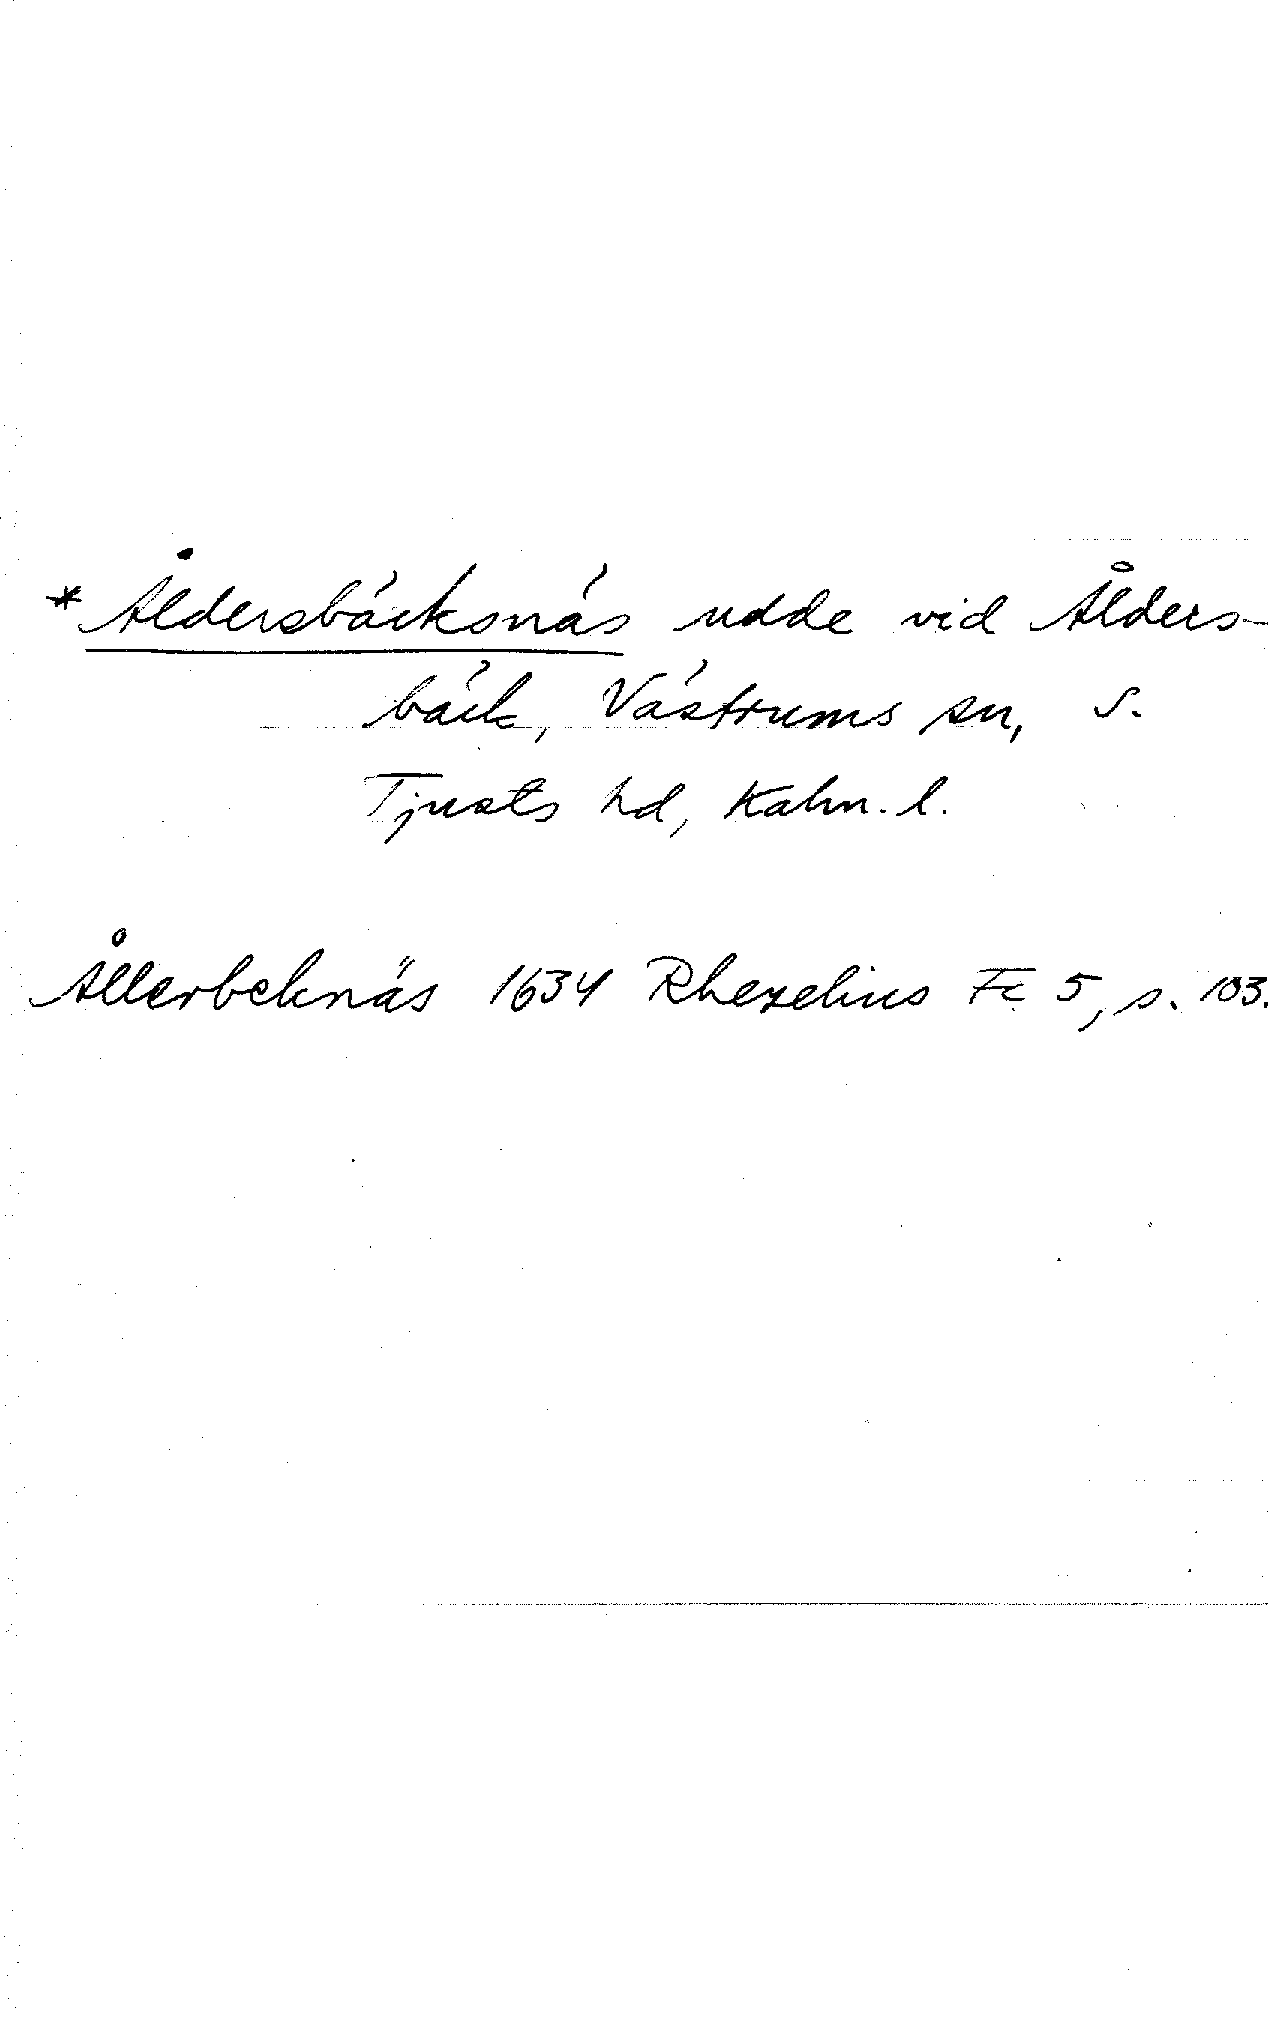 *Åldersbäcksnäs udde vid Ålders-
bäck, Västrums sn, S.
Tjusts hd, Kalm. l.
Ållerbeknäs 1634 Rhezelius Fc 5, s. 103.